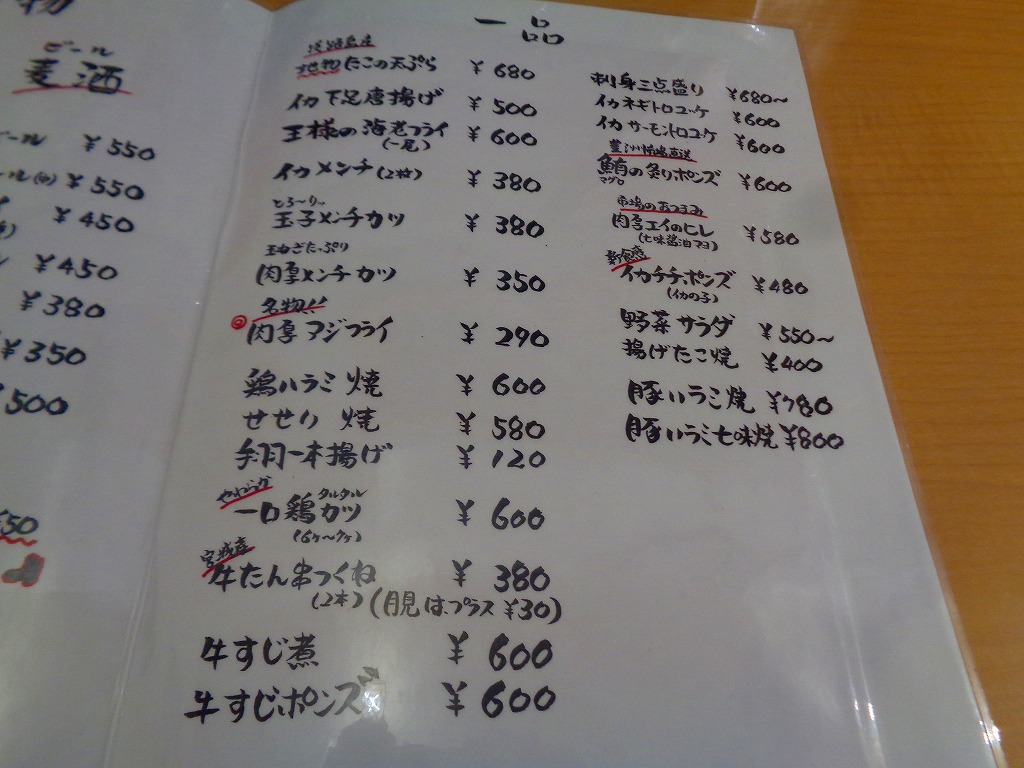 物
ビール
麦酒
ビール ¥550
¥550
¥450
¥450
¥380
¥350
¥500
一品
淡路島産
地物たこの天ぷら ¥680
イカ下足唐揚げ ¥500
王様の海老フライ ¥600
(一尾)
イカメンチ(2ヶ) ¥380
とろ〜りッ
玉子メンチカツ ¥380
玉ねぎたっぷり
肉厚メンチカツ ¥350
名物!!
肉厚アジフライ ¥290
鶏ハラミ焼 ¥600
せせり焼 ¥580
手羽一本揚げ ¥120
やわらか
タルタル
一口鶏カツ ¥600
(6ヶ〜7ヶ)
宮城産
牛たん串つくね ¥380
(2本)(月見はプラス¥30)
牛すじ煮 ¥600
牛すじポンズ ¥600
刺身三点盛り ¥680〜
イカネギトロユッケ ¥600
イカサーモントロユッケ ¥600
豊洲市場直送
鮪の炙りポンズ ¥600
マグロ
市場のおつまみ
肉厚エイのヒレ ¥580
(七味醤油マヨ)
新食感
イカチチポンズ ¥480
(イカの子)
野菜サラダ ¥550〜
揚げたこ焼 ¥400
豚ハラミ焼 ¥780
豚ハラミ七味焼 ¥800